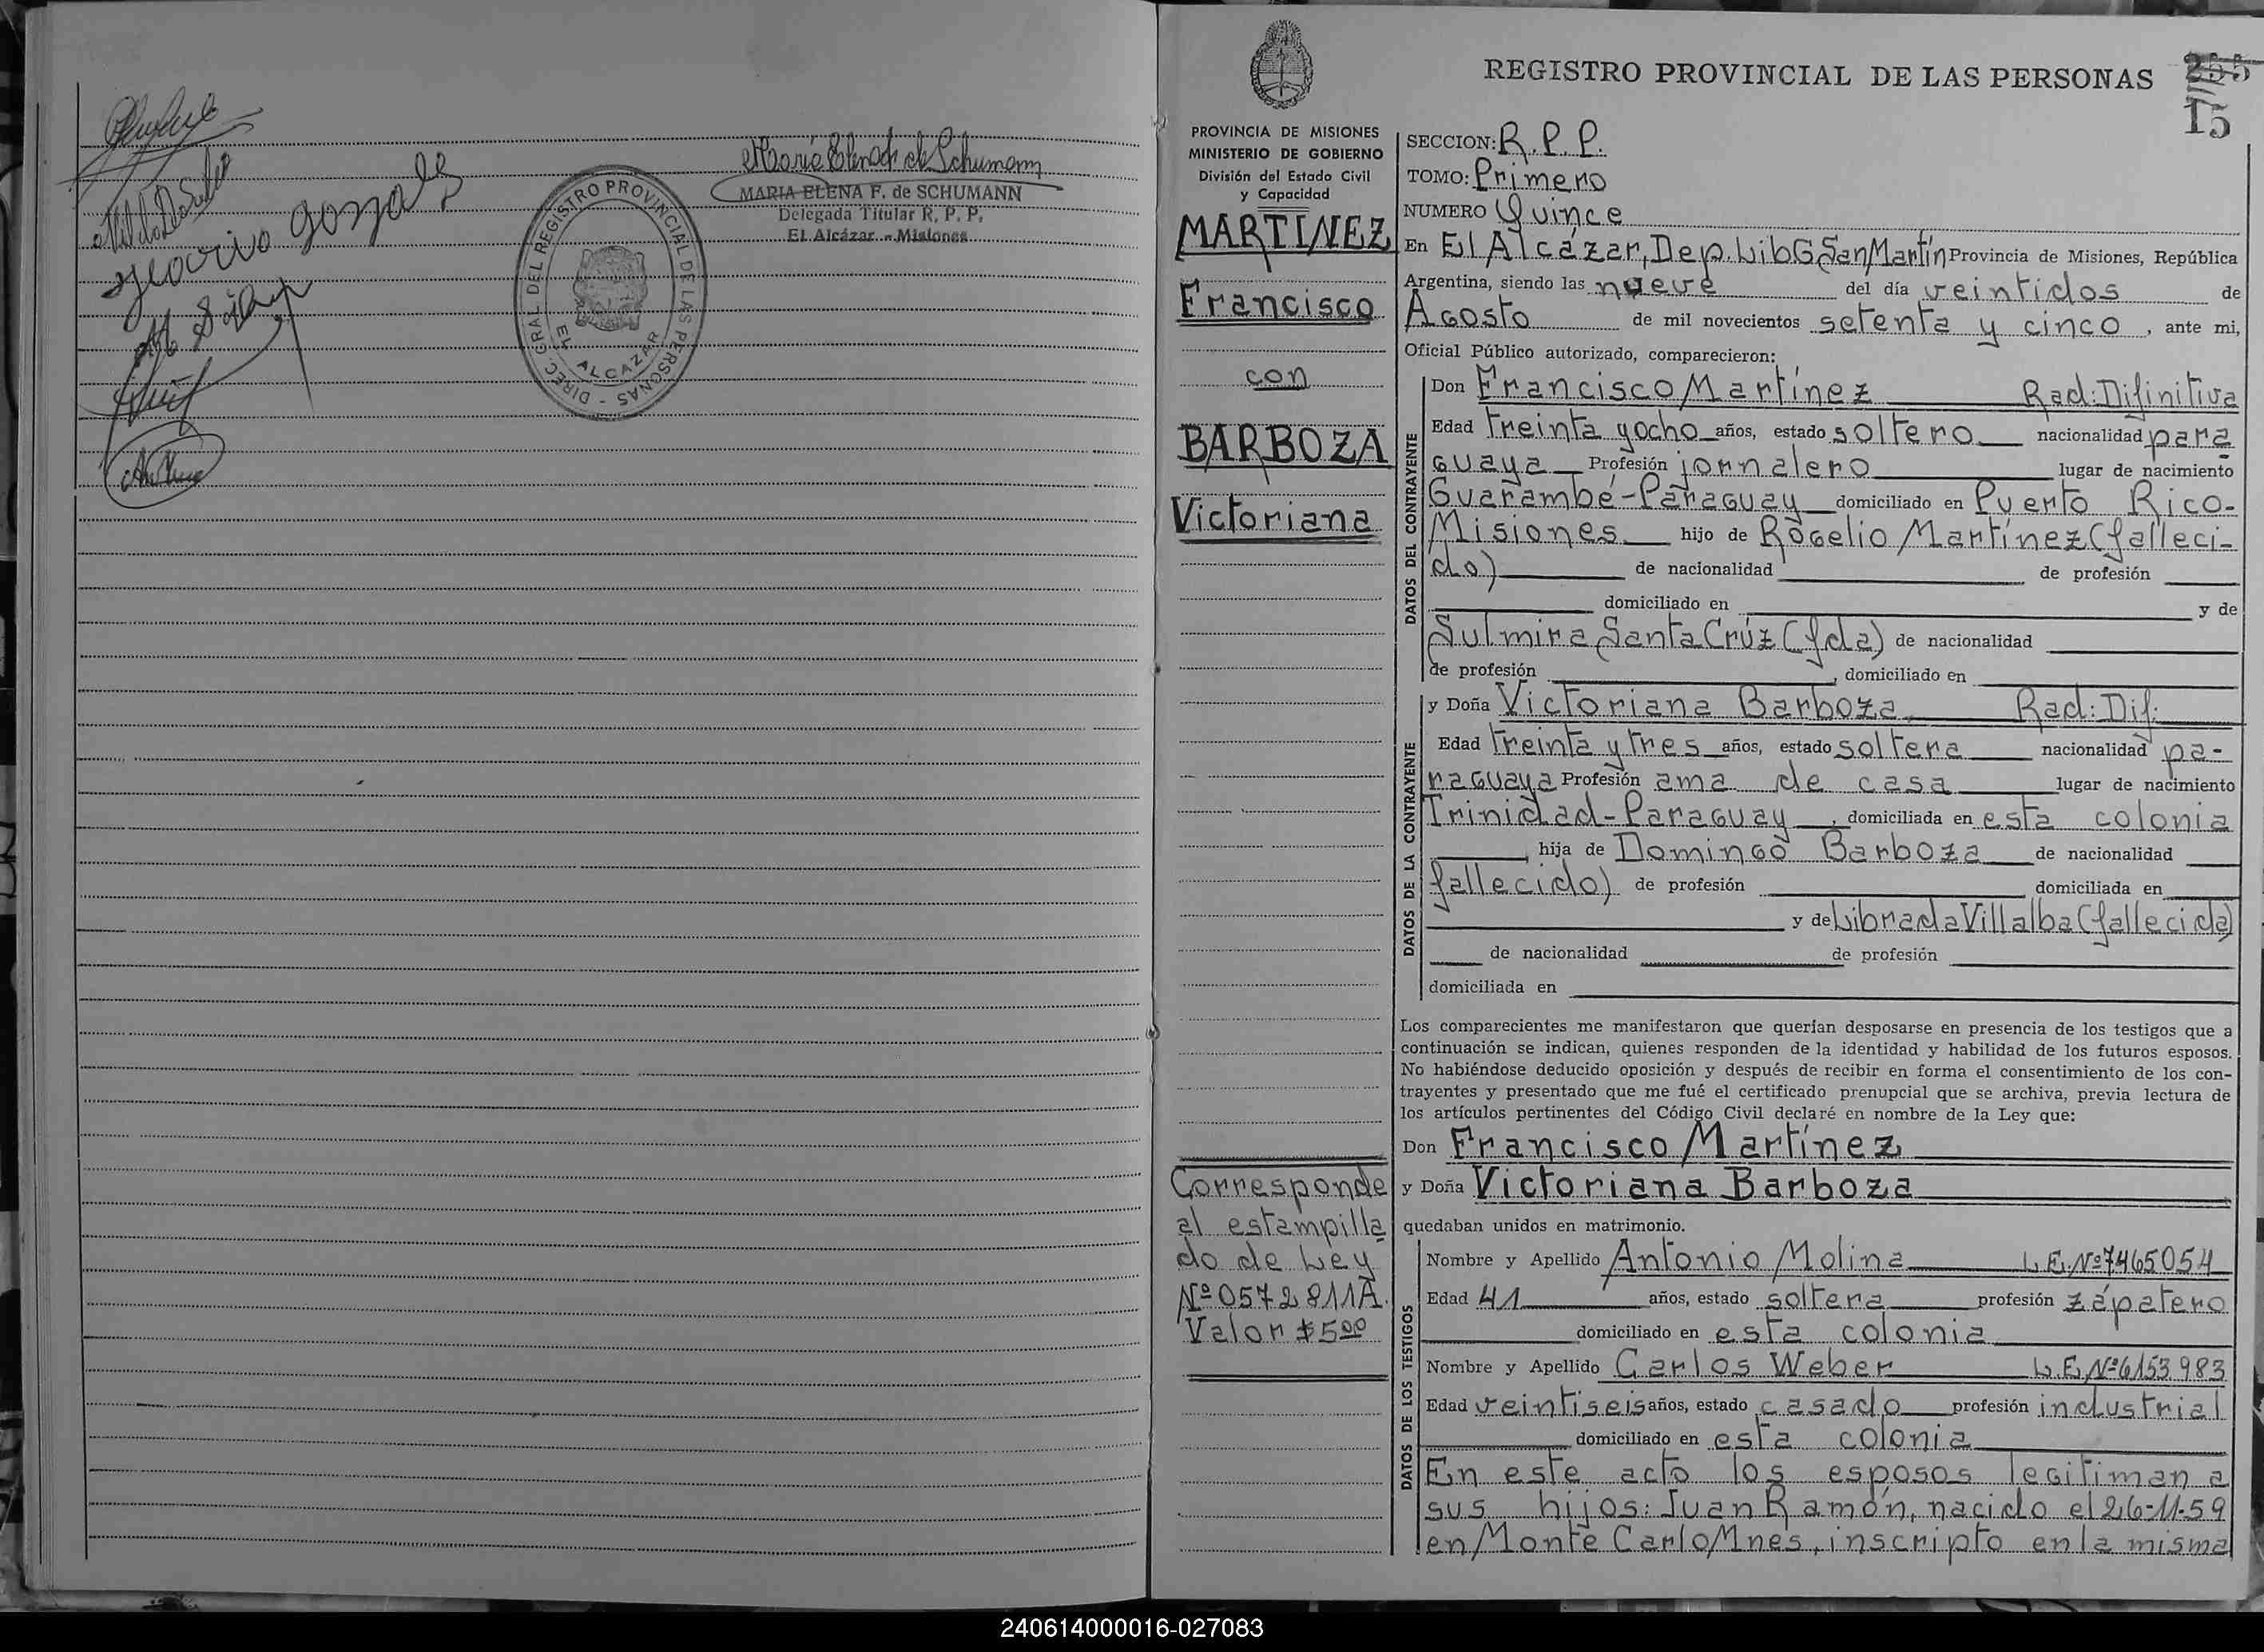 María Elena F. de Schumann
MARIA ELENA F. de SCHUMANN
Delegada Titular R. P. P.
El Alcázar - Misiones
DIREC. GRAL. DEL REGISTRO PROVINCIAL DE LAS PERSONAS -
EL ALCAZAR
REGISTRO PROVINCIAL DE LAS PERSONAS
255
15
PROVINCIA DE MISIONES
MINISTERIO DE GOBIERNO
División del Estado Civil
y Capacidad
MARTINEZ
Francisco
con
BARBOZA
Victoriana
Corresponde
al estampilla
do de Ley
Nº 0572811A.
Valor $500
SECCION: R. P. P.
TOMO: Primero
NUMERO Quince
En El Alcázar, Dep. Lib G San Martín Provincia de Misiones, República
Argentina, siendo las nueve del día veintidos de
Agosto de mil novecientos setenta y cinco, ante mi,
Oficial Público autorizado, comparecieron:
DATOS DEL CONTRAYENTE
Don Francisco Martínez Rad: Difinitiva
Edad treinta y ocho años, estado soltero nacionalidad para
guaya Profesión jornalero lugar de nacimiento
Guarambé-Paraguay domiciliado en Puerto Rico-
Misiones hijo de Rogelio Martínez (falleci-
do) de nacionalidad de profesión
domiciliado en y de
Sulmira Santa Crúz (fda) de nacionalidad
de profesión , domiciliado en
DATOS DE LA CONTRAYENTE
y Doña Victoriana Barboza Rad: Dif:
Edad treinta y tres años, estado soltera nacionalidad pa-
raguaya Profesión ama de casa lugar de nacimiento
Trinidad-Paraguay, domiciliada en esta colonia
, hija de Domingo Barboza de nacionalidad
fallecido) de profesión domiciliada en
y de Librada Villalba (fallecida)
de nacionalidad de profesión
domiciliada en
Los comparecientes me manifestaron que querían desposarse en presencia de los testigos que a
continuación se indican, quienes responden de la identidad y habilidad de los futuros esposos.
No habiéndose deducido oposición y después de recibir en forma el consentimiento de los con-
trayentes y presentado que me fué el certificado prenupcial que se archiva, previa lectura de
los artículos pertinentes del Código Civil declaré en nombre de la Ley que:
Don Francisco Martínez
y Doña Victoriana Barboza
quedaban unidos en matrimonio.
DATOS DE LOS TESTIGOS
Nombre y Apellido Antonio Molina L.E. Nº 7465054
Edad 41 años, estado soltera profesión zápatero
domiciliado en esta colonia
Nombre y Apellido Carlos Weber L.E. Nº 6153.983
Edad veintiseis años, estado casado profesión industrial
domiciliado en esta colonia
En este acto los esposos legitiman a
sus hijos: Juan Ramón, nacido el 26-11-59
en Monte Carlo Mnes, inscripto en la misma
240614000016-027083